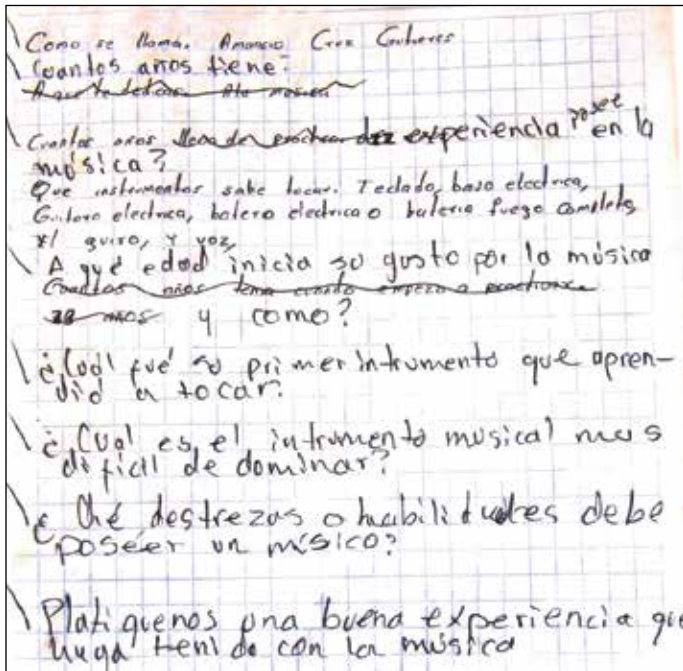 Como se llama. Amancio Cruz Gutieres
Cuantos anos tiene:
Cuantos anos lleva de practica experiencia posee en la
música?
Que instrumentos sabe tocar. Teclado, bajo electrico,
Guitara electrica, bateria electrica o bateria fuego completa
el guiro, y voz,
A qué edad inicia su gusto por la música
Cuantos años tenia cuando empezo a practicar
y como?
¿Cuál fué su primer intrumento que apren-
dió a tocar?
¿Cual es el intrumento musical mas
dificil de dominar?
¿Ché destrezas o habilidades debe
poséer un músico?
Platiquenos una buena experiencia que
haya tenido con la música